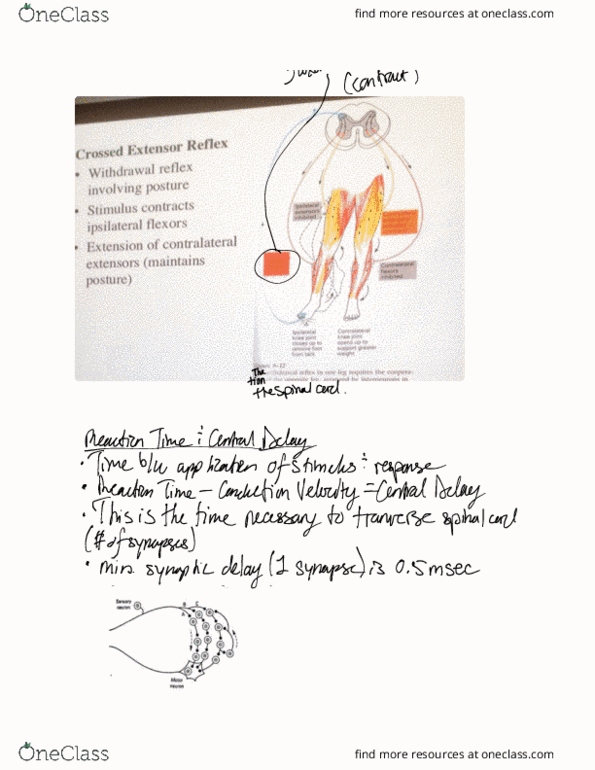 OneClass
find more resources at oneclass.com
(contract)
Crossed Extensor Reflex
• Withdrawal reflex
involving posture
• Stimulus contracts
ipsilateral flexors
• Extension of contralateral
extensors (maintains
posture)
Ipsilateral
extensors
inhibited
Contralateral
flexors
inhibited
Ipsilateral
knee joint
closed up to
remove foot
from tack
Contralateral
knee joint
opens up to
support greater
weight
The
reflex in one leg requires the
the spinal cord.
Reaction Time & Central Delay
• Time b/w application of stimulus & response
• Reaction Time – Conduction Velocity = Central Delay
• This is the time necessary to tranverse spinal cord
(# of synapses)
• min. synaptic delay (1 synapse) is 0.5 msec
Sensory
neuron
Motor
neuron
OneClass
find more resources at oneclass.com